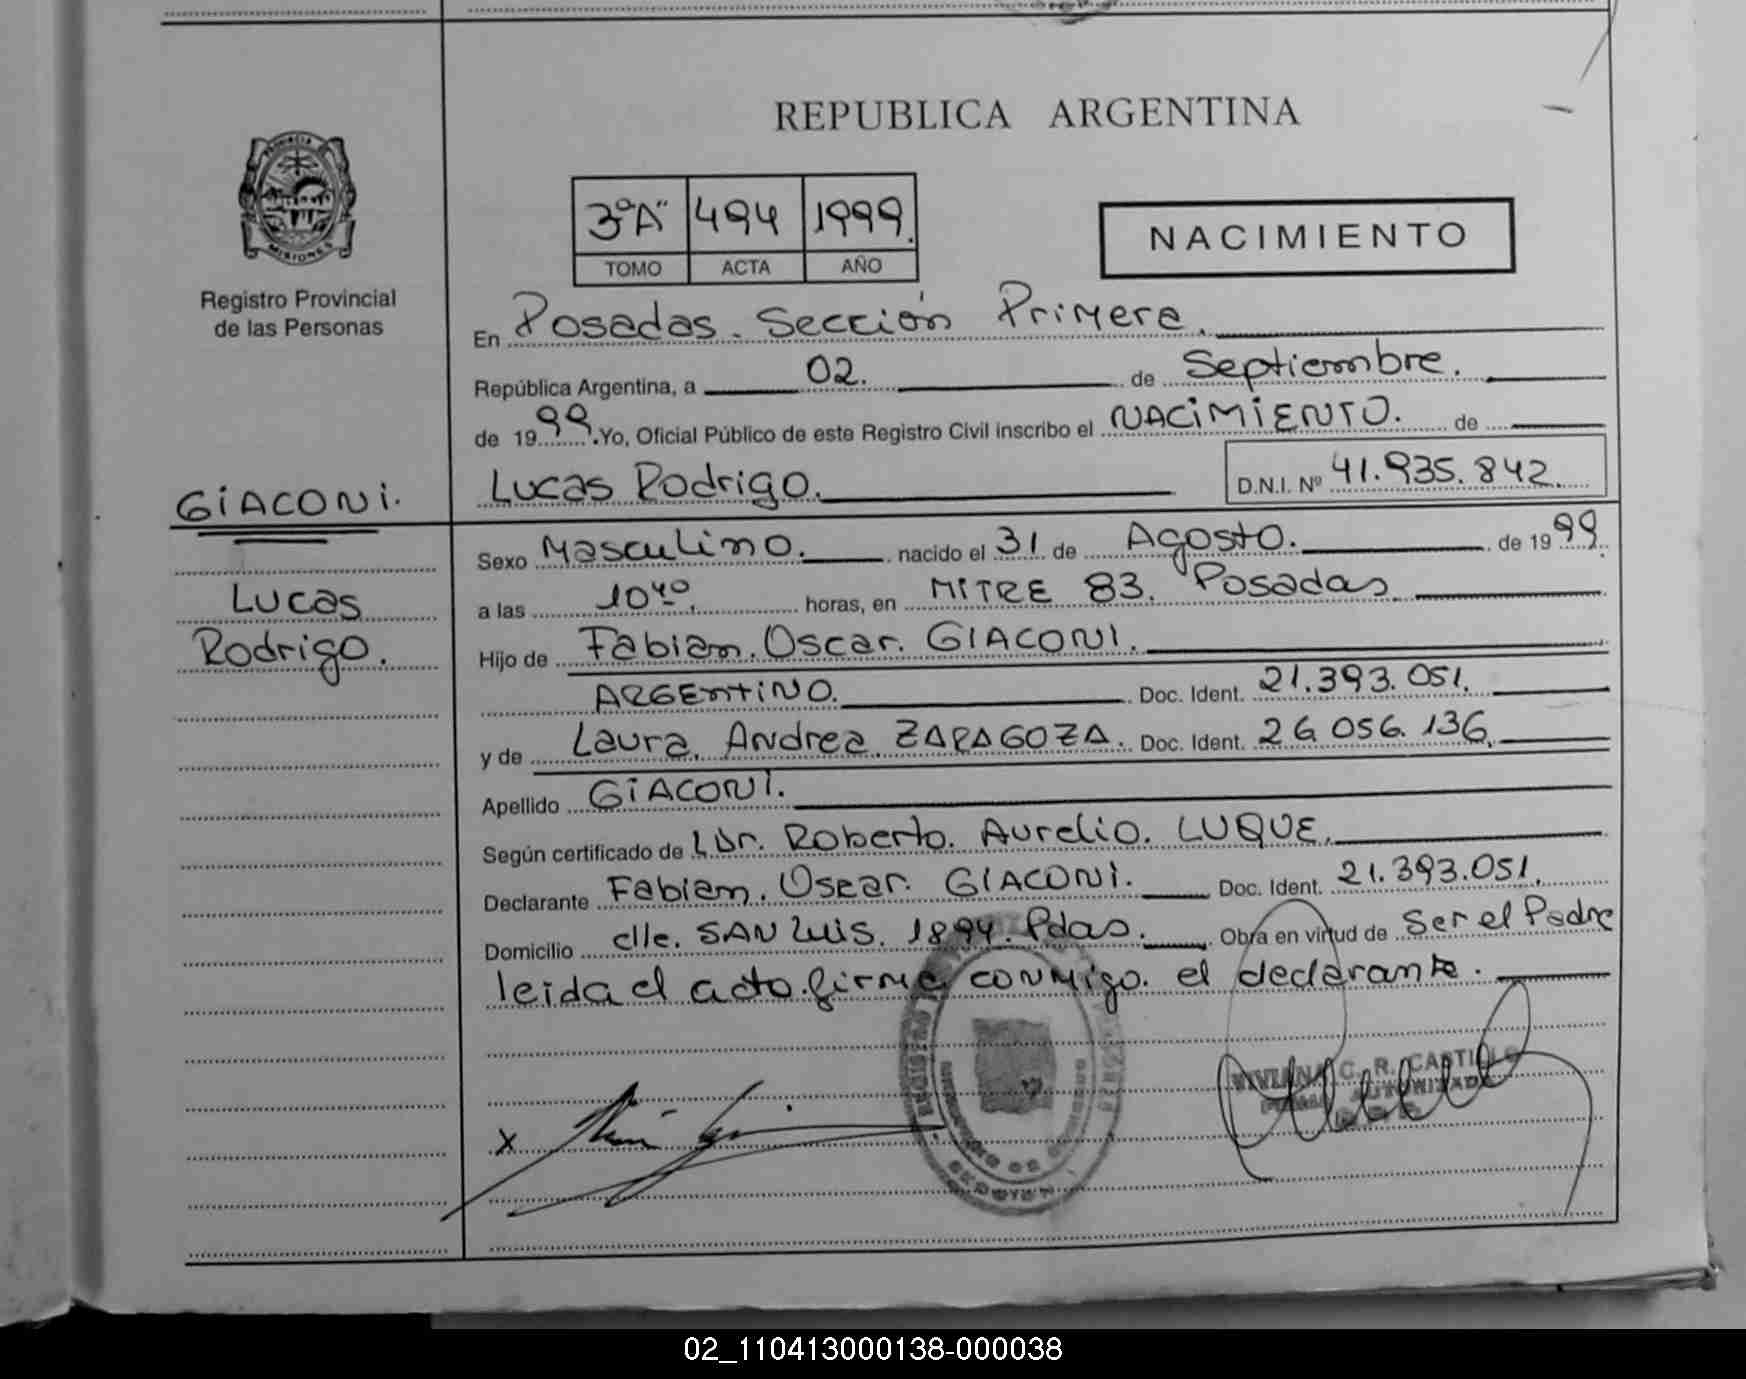 REPUBLICA ARGENTINA
PROVINCIA DE
MISIONES
Registro Provincial
de las Personas
3º"A" 494 1999.
TOMO ACTA AÑO
NACIMIENTO
En Posadas. Sección Primera.
República Argentina, a 02. de Septiembre.
de 1999. Yo, Oficial Público de este Registro Civil inscribo el NACIMIENTO. de
GIACONI.
Lucas Rodrigo. D.N.I. Nº 41.935.842.
Sexo Masculino. nacido el 31 de Agosto. de 1999.
Lucas
a las 10⁴⁰. horas, en MITRE 83. Posadas.
Rodrigo.
Hijo de Fabian. Oscar. GIACONI.
ARGENTINO. Doc. Ident. 21.393.051.
y de Laura. Andrea. ZARAGOZA. Doc. Ident. 26.056.136.
Apellido GIACONI.
Según certificado de Dr. Roberto. Aurelio. LUQUE.
Declarante Fabian. Oscar. GIACONI. Doc. Ident. 21.393.051.
Domicilio clle. SAN LUIS. 1894. Pdas. Obra en virtud de Ser el Padre
leida el acta firma conmigo. el declarante.
X
VIVIANA C. R. CASTILLO
FIRMA AUTORIZADA
02_110413000138-000038